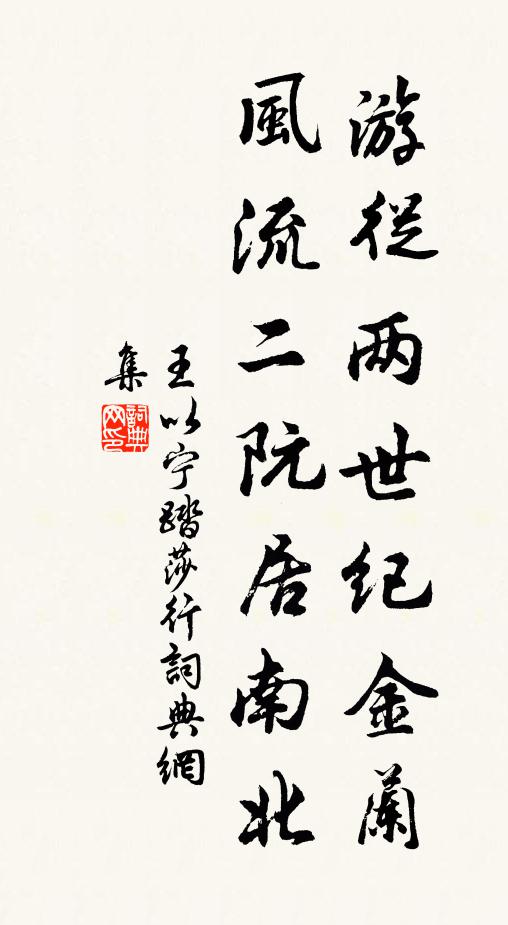 游從两世纪金蘭
風流二阮居南北
王以宁踏莎行詞典網
集
詞典网印